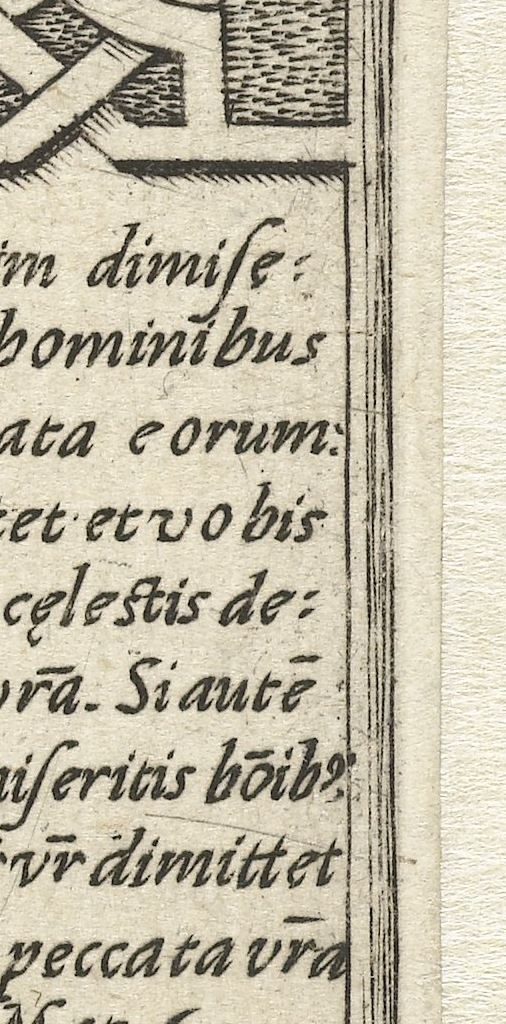 im dimisę:
hominībus
ata eorum:
tet et vobis
cęlestis de:
vrā. Si autē
iseritis hōibꝰ:
vr̄ dimittet
peccata vrā